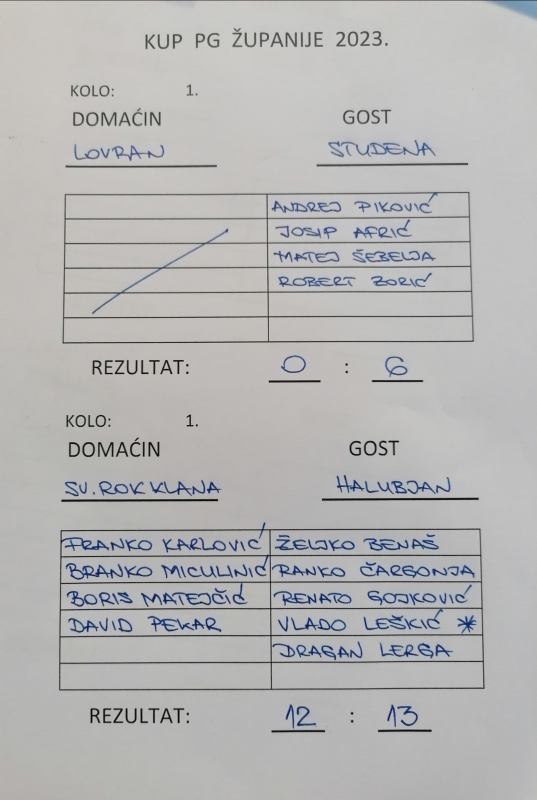 KUP PG ŽUPANIJE 2023.
KOLO: 1.
DOMAĆIN GOST
LOVRAN STUDENA
ANDREJ PIKOVIĆ
JOSIP AFRIĆ
MATEJ ŠEBELJA
ROBERT ZORIĆ
REZULTAT: 0 : 6
KOLO: 1.
DOMAĆIN GOST
SV. ROK KLANA HALUBJAN
FRANKO KARLOVIĆ ŽELJKO BENAŠ
BRANKO MICULINIĆ RANKO ČARGONJA
BORIS MATEJČIĆ RENATO GOJKOVIĆ
DAVID PEKAR VLADO LEŠKIĆ *
DRAGAN LERGA
REZULTAT: 12 : 13